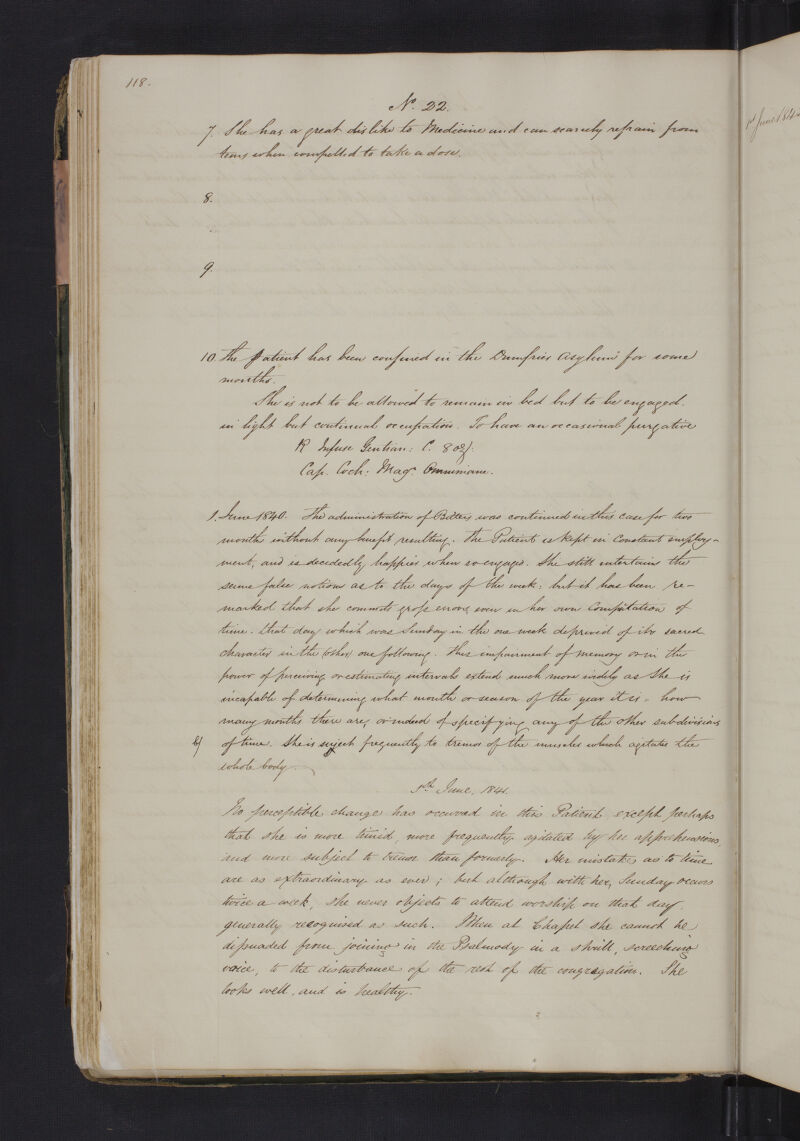 118.
No. 22.
7. She has a great dislike to Medicine and can scarcely refrain from
tears when compelled to take a dose.
8.
9.
10. The Patient has been confined in the Dumfries Asylum for some
months.
She is not to be allowed to remain in bed but to be engaged
in light but continual occupation. To have an occasional purgative
R Infuse Gentian: C. 8 oz.
Cap. Coch: Mag.
1. June 1840. The administration of Bitters was continued in this case for two
months without any benefit resulting. The Patient is kept in Constant employ-
ment, and is decidedly happier when so engaged. She still entertains the
same false notions as to the days of the week. but it has been re-
marked that she commits gross errors even in her own Computation of
time: that day which was Sunday in the one week deprived of its sacred
character in the (other) one following. This impairment of memory or in the
power of perceiving or estimating intervals extend much more widely as She is
incapable of determining what month or season of the year it is - how
many months there are, or indeed of specifying any of the other subdivisions
b/ of time. She is suject frequently to tremor of the muscles which agitates the
whole body.
1st June, 1841.
No perceptible change has occurred in this Patient except perhaps
that she is more timid, more frequently agitated by her apprehensions,
and more subject to tremor than formerly. Her mistakes as to time
are as extraordinary as ever; but although with her, Sunday occurs
twice a week, she never objects to attend worship on that day
generally recognised as such. When at Chapel she cannot be
dissuaded from joining in the Psalmody in a shrill, screeching
voice, to the disturbance of the rest of the congregation. She
looks well, and is healthy.
1st June 1844